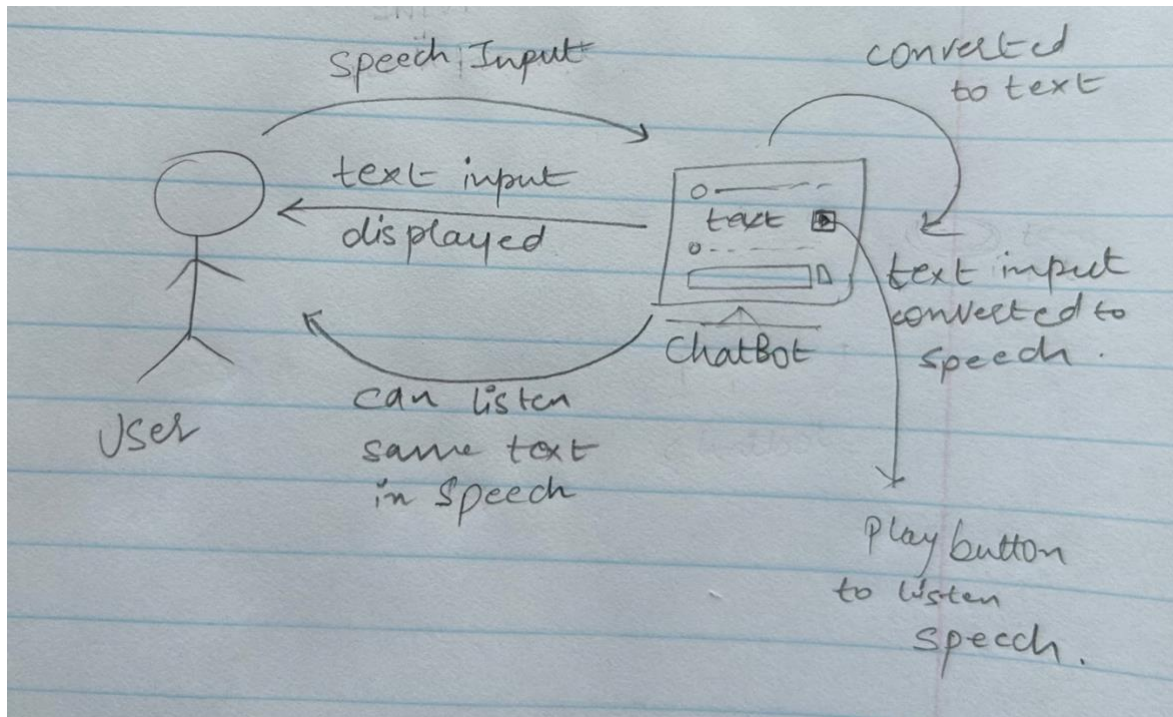 Speech Input
converted
to text
text input
displayed
text
text input
converted to
speech.
ChatBot
User
can listen
same text
in speech
Play button
to listen
speech.